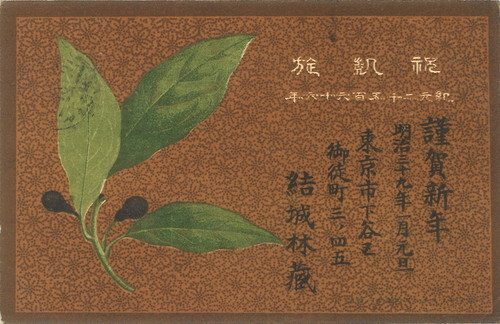 祝凱旋
紀元二千五百六十六年
謹賀新年
明治三十九年一月元旦
東京市下谷区
御徒町三ノ四五
結城林蔵